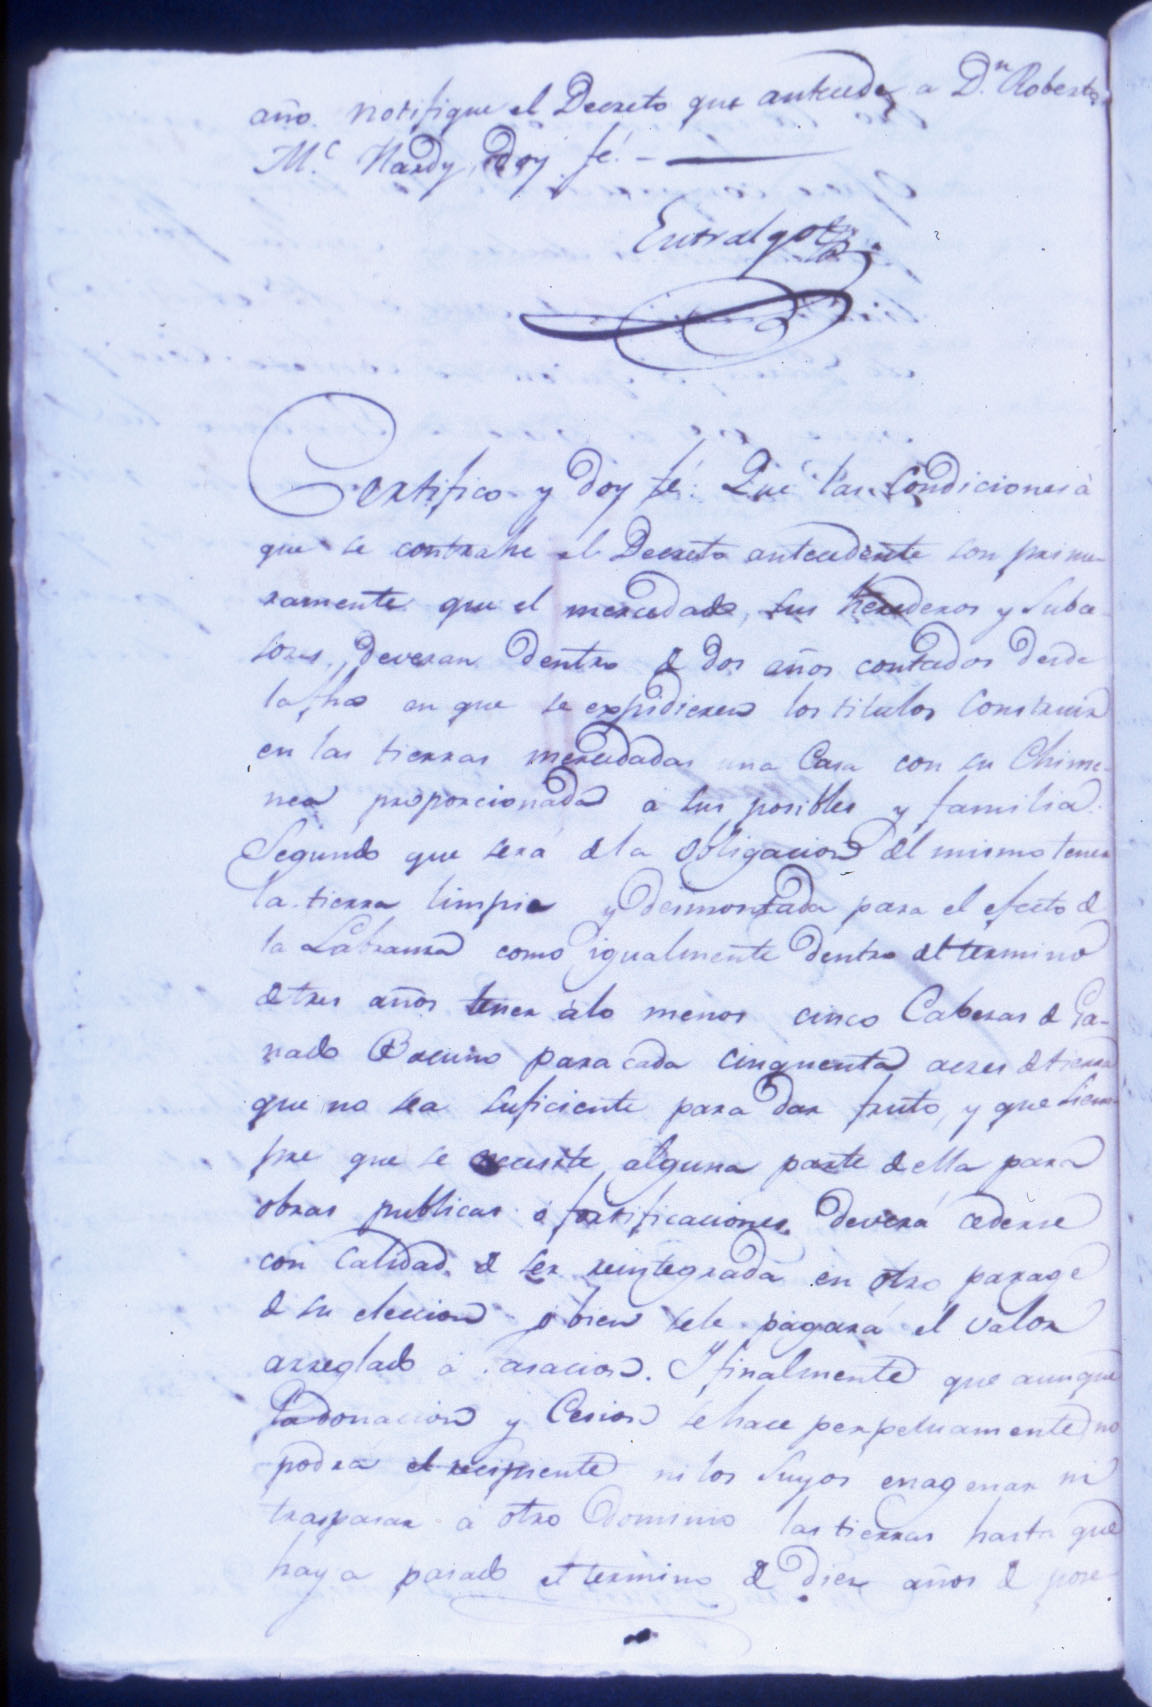 año. notifique el Decreto que antecede a D.n Roberto
M.c Hardy, doy fé. —
Entralgo
Certifico y doy fé: Que las Condiciones à
que se contrahe el Decreto antecedente son prime-
ramente que el mercedado, sus herederos y Subce-
sores, deveran dentro de dos años contados desde
la fha en que se expidieren los titulos Construir
en las tierras mercedadas una Casa con su Chime-
nea proporcionada à sus posibles y familia.
Segundo que será de la Obligacion del mismo tener
la tierra limpia y desmontada para el efecto de
la Labranza como igualmente dentro del termino
de tres años tener álo menos cinco Cabezas de Ga-
nado Bacuno para cada cinquenta acres de tierra
que no sea suficiente para dar fruto, y que siem-
pre que se necesite alguna parte de ella para
obras publicas ó fortificaciones deverá cederse
con calidad de ser reintegrada en otro parage
de su eleccion ó bien se le pagará el valor
arreglado á tasacion. Y finalmente que aunque
la donacion y Cesion se hace perpetuamente no
podrá el recipiente ni los Suyos enagenar ni
traspasar à otro Dominio las tierras hasta que
haya pasado el termino de diez años de pose-